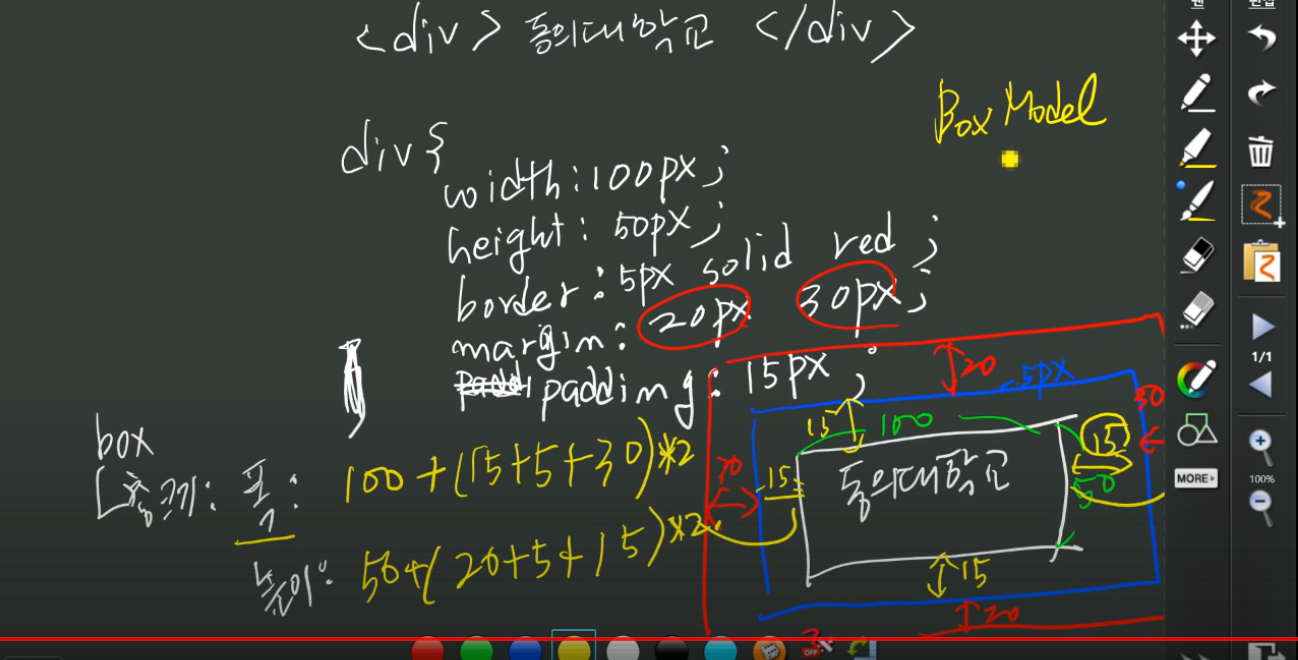 <div> 동의대학교 </div>
Box Model
div {
width: 100px;
height: 50px;
border: 5px solid red;
margin: 20px 30px;
padding: 15px;
box
총크기: 폭: 100+(15+5+30)*2
높이: 50+(20+5+15)*2
20
5px
30
15
100
15
30
15
동의대학교
50
15
20
펜
편집
1/1
100%
MORE
OFF